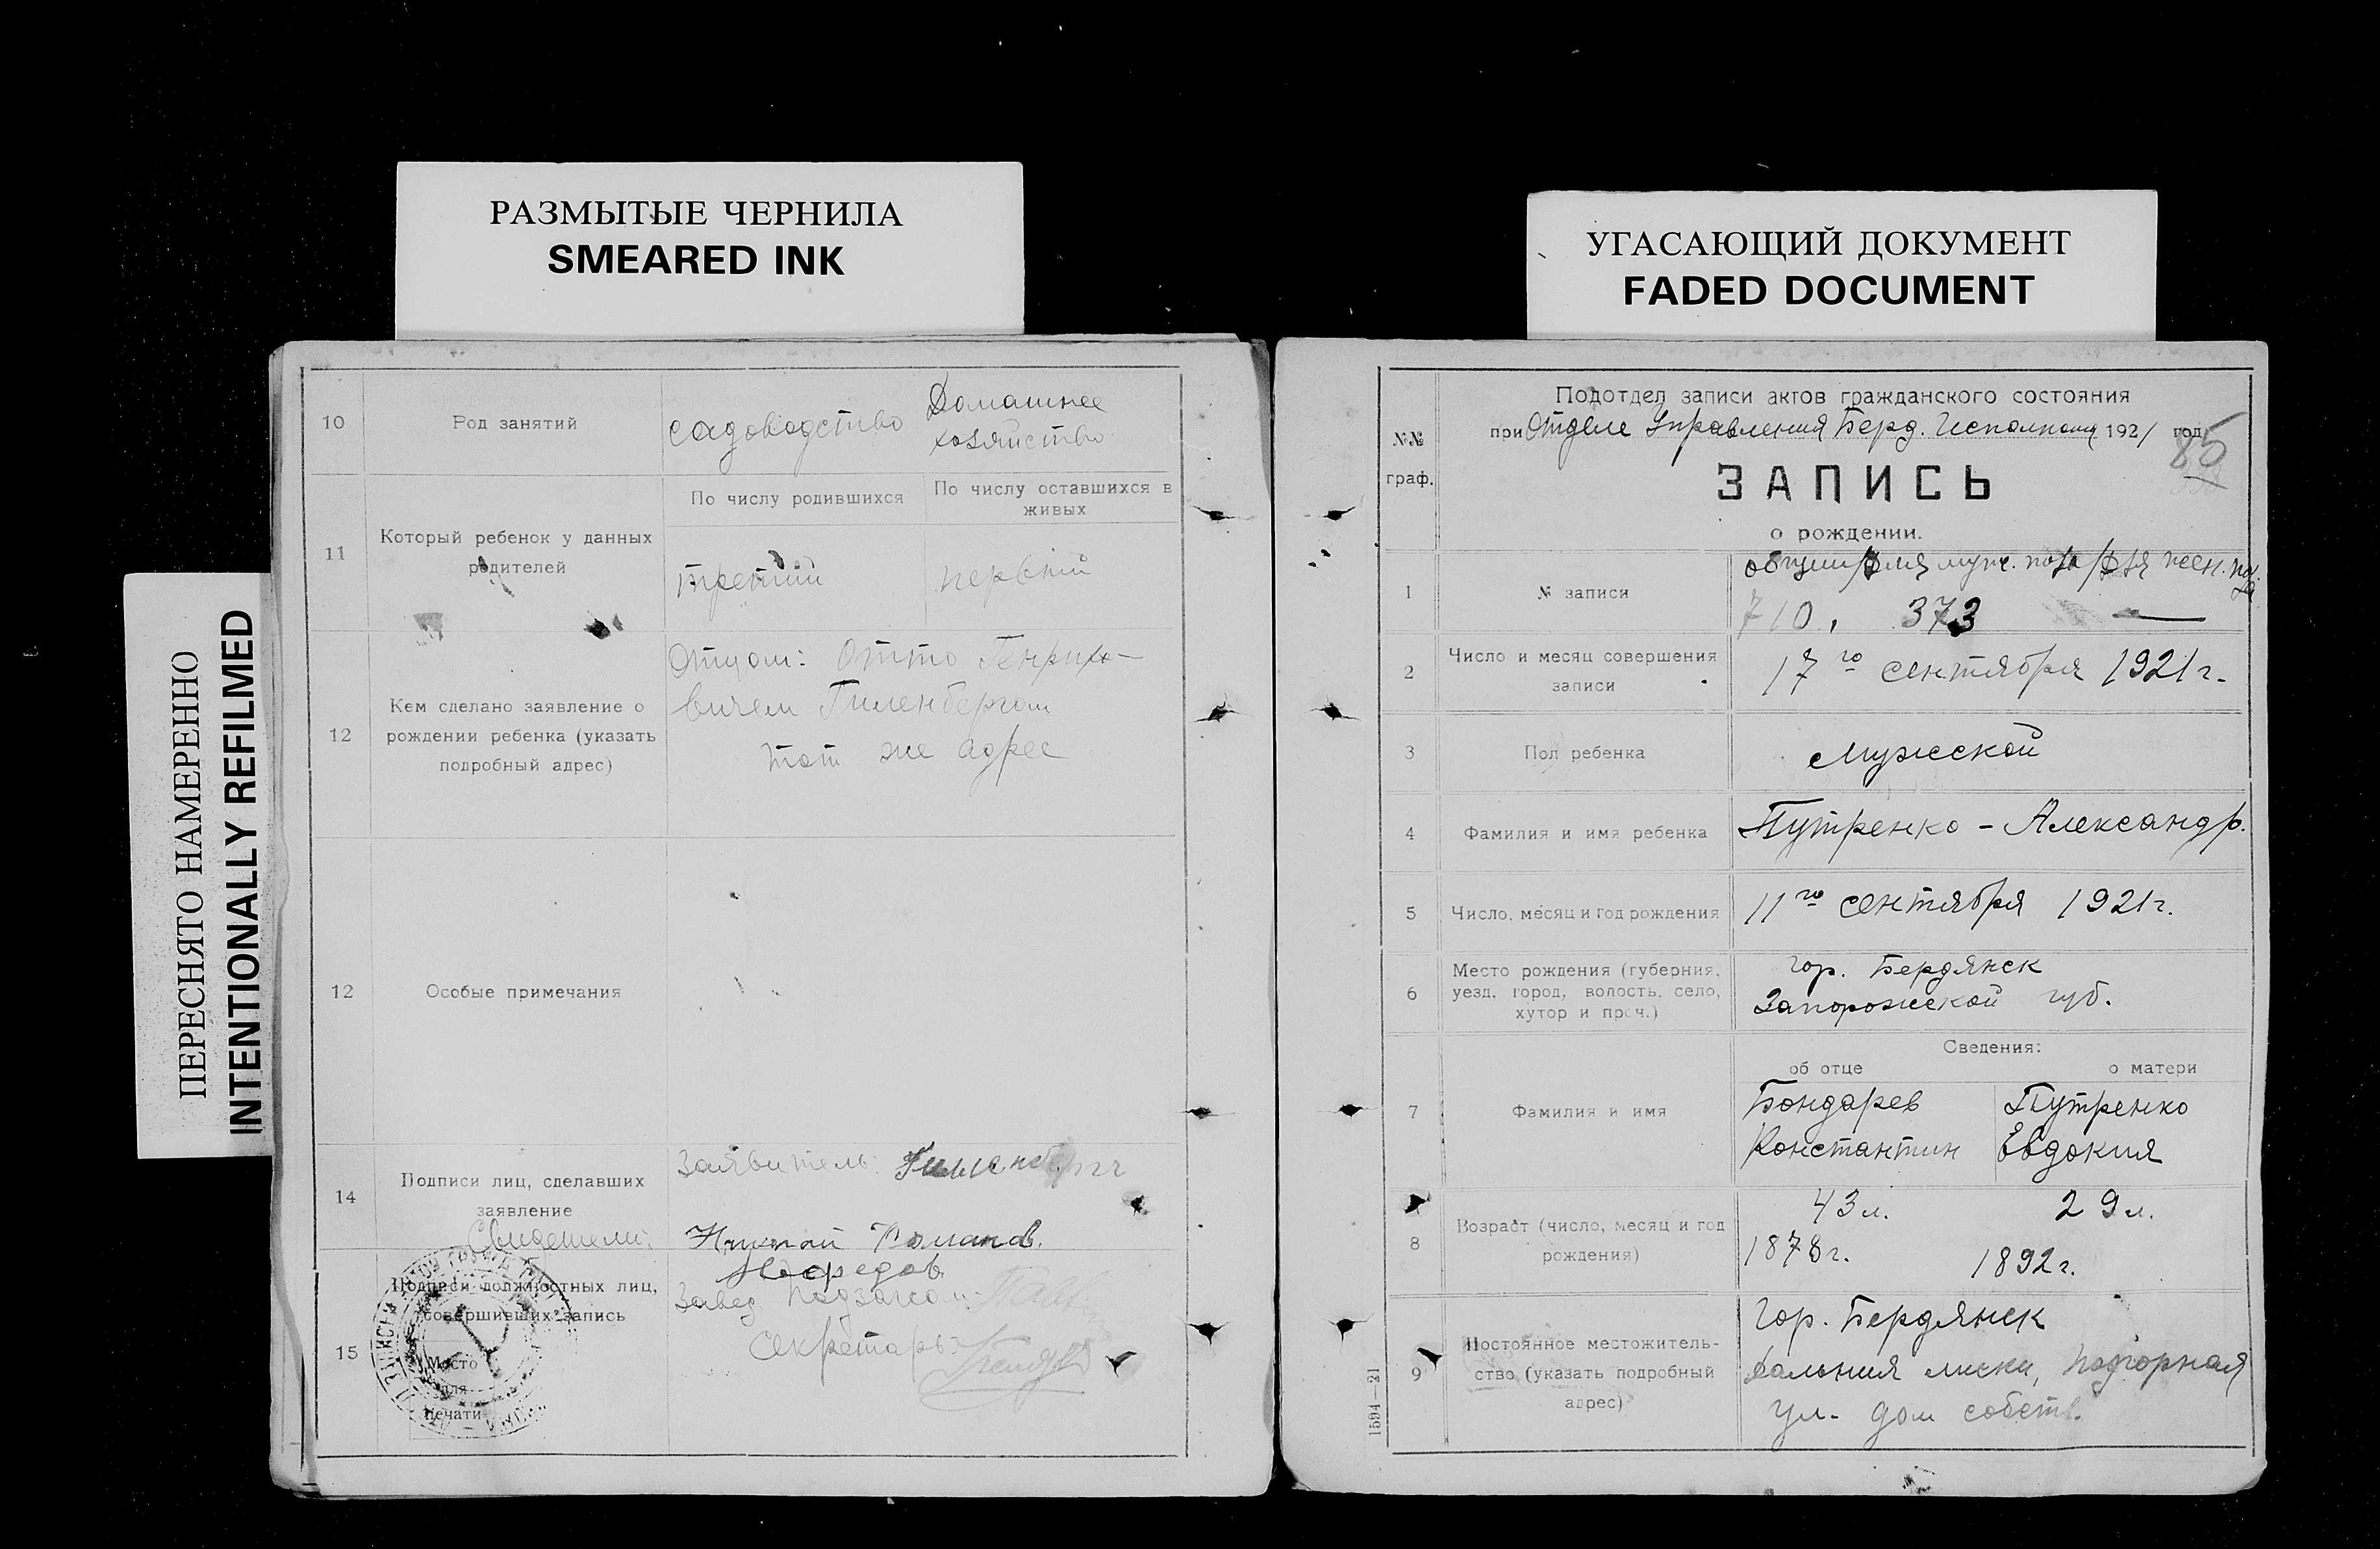 РАЗМЫТЫЕ ЧЕРНИЛА
SMEARED INK
ПЕРЕСНЯТО НАМЕРЕННО
INTENTIONALLY REFILMED
10
Род занятий
садоводство
Домашнее
хозяйство
11
Который ребенок у данных
родителей
По числу родившихся
По числу оставшихся в
живых
третий
первый
12
Кем сделано заявление о
рождении ребенка (указать
подробный адрес)
Отцом: Отто Генрихо-
вичем Гиленбергом
тот же адрес
12
Особые примечания
14
Подписи лиц, сделавших
заявление
Свидетели:
Заявитель: Гиленберг
Романов.
15
Подписи должностных лиц,
совершивших запись
Место
для
печати
Завед. Подзагсом:
Секретарь:
УГАСАЮЩИЙ ДОКУМЕНТ
FADED DOCUMENT
№№
граф.
Подотдел записи актов гражданского состояния
при Отделе Управления Берд. Исполкома 1921 год
85
ЗАПИСЬ
о рождении.
1
№ записи
общий/для муж. пола/для жен. пола
710, 373 —
2
Число и месяц совершения
записи
17го сентября 1921 г.
3
Пол ребенка
Мужской
4
Фамилия и имя ребенка
Путренко - Александр.
5
Число, месяц и год рождения
11го сентября 1921 г.
6
Место рождения (губерния,
уезд, город, волость, село,
хутор и проч.)
гор. Бердянск
Запорожской губ.
Сведения:
об отце
о матери
7
Фамилия и имя
Бондарев
Константин
Путренко
Евдокия
8
Возраст (число, месяц и год
рождения)
43 л.
1878 г.
29 л.
1892 г.
9
Постоянное местожитель-
ство (указать подробный
адрес)
Гор. Бердянск
Дальния лиски, Подгорная
ул. дом собств.
1594—21